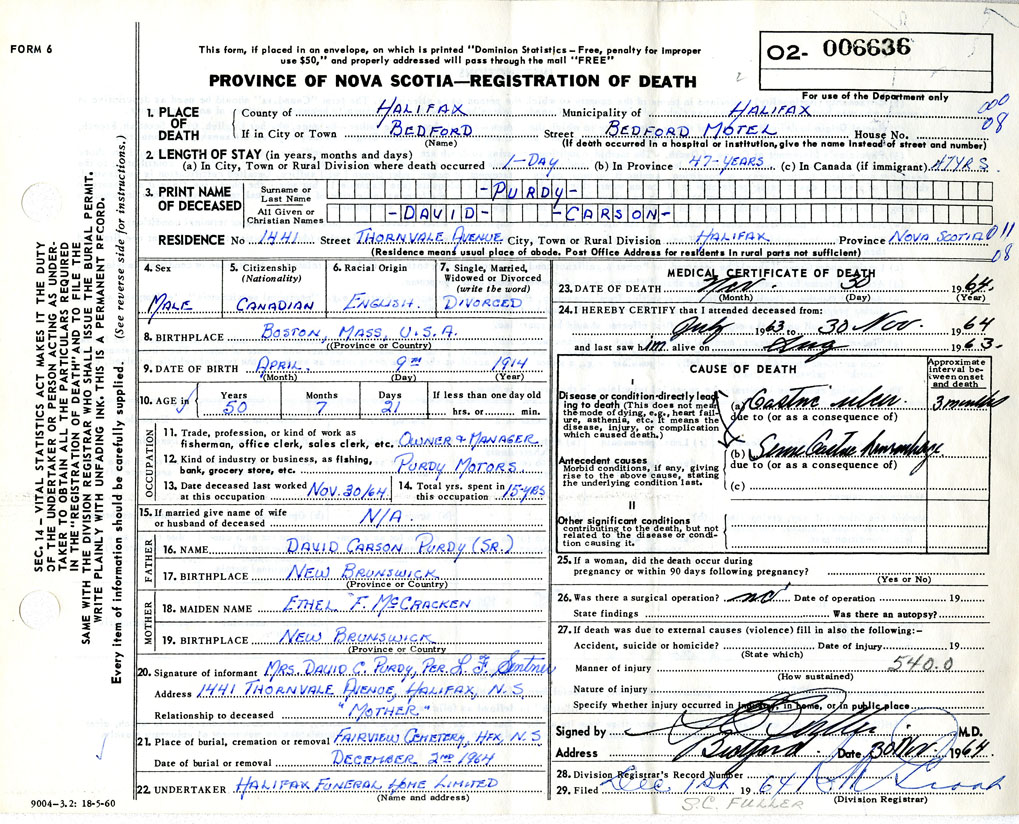 FORM 6
This form, if placed in an envelope, on which is printed "Dominion Statistics – Free, penalty for improper
use $50," and properly addressed will pass through the mail "FREE"
O2- 006636
PROVINCE OF NOVA SCOTIA—REGISTRATION OF DEATH
For use of the Department only
000
08
1. PLACE OF DEATH
County of HALIFAX Municipality of HALIFAX
If in City or Town BEDFORD Street BEDFORD MOTEL House No.
(Name) (If death occurred in a hospital or institution, give the name instead of street and number)
2. LENGTH OF STAY (in years, months and days)
(a) In City, Town or Rural Division where death occurred 1-DAY (b) In Province 47-YEARS (c) In Canada (if immigrant) 47 YRS
3. PRINT NAME OF DECEASED
Surname or Last Name -PURDY-
All Given or Christian Names -DAVID- -CARSON-
RESIDENCE No 1441 Street THORNVALE AVENUE City, Town or Rural Division HALIFAX Province NOVA SCOTIA 011
08
(Residence means usual place of abode. Post Office Address for residents in rural parts not sufficient)
4. Sex
MALE
5. Citizenship (Nationality)
CANADIAN
6. Racial Origin
ENGLISH.
7. Single, Married, Widowed or Divorced (write the word)
DIVORCED
8. BIRTHPLACE BOSTON, MASS, U.S.A.
(Province or Country)
9. DATE OF BIRTH APRIL 9TH 1914
(Month) (Day) (Year)
10. AGE in
Years Months Days If less than one day old
50 7 21 hrs. or min.
OCCUPATION
11. Trade, profession, or kind of work as
fisherman, office clerk, sales clerk, etc. OWNER & MANAGER
12. Kind of industry or business, as fishing,
bank, grocery store, etc. PURDY MOTORS
13. Date deceased last worked at this occupation NOV. 30/64
14. Total yrs. spent in this occupation 15-YRS
15. If married give name of wife
or husband of deceased N/A.
FATHER
16. NAME DAVID CARSON PURDY (SR.)
17. BIRTHPLACE NEW BRUNSWICK
(Province or Country)
MOTHER
18. MAIDEN NAME ETHEL F. MCCRACKEN
19. BIRTHPLACE NEW BRUNSWICK
(Province or Country
20. Signature of informant MRS. DAVID C. PURDY, PER. L. F.
Address 1441 THORNVALE AVENUE, HALIFAX, N.S
Relationship to deceased "MOTHER"
21. Place of burial, cremation or removal FAIRVIEW CEMETERY, HFX, N.S
Date of burial or removal DECEMBER 2ND 1964
22. UNDERTAKER HALIFAX FUNERAL HOME LIMITED
(Name and address)
MEDICAL CERTIFICATE OF DEATH
23. DATE OF DEATH Nov. 30 1964.
(Month) (Day) (Year)
24. I HEREBY CERTIFY that I attended deceased from:
July 1963 to 30 Nov. 1964
and last saw him alive on Aug 1963.
CAUSE OF DEATH
Approximate interval between onset and death
I
Disease or condition directly leading to death (This does not mean
the mode of dying, e.g., heart failure, asthenia, etc. It means the
disease, injury, or complication
which caused death.)
(a) Gastric ulcer 3 months
due to (or as a consequence of)
Antecedent causes
Morbid conditions, if any, giving
rise to the above cause, stating
the underlying condition last.
(b) Gastric
due to (or as a consequence of)
(c)
II
Other significant conditions
contributing to the death, but not
related to the disease or condition causing it.
25. If a woman, did the death occur during
pregnancy or within 90 days following pregnancy?
(Yes or No)
26. Was there a surgical operation? no Date of operation 19
State findings Was there an autopsy?
27. If death was due to external causes (violence) fill in also the following:–
Accident, suicide or homicide? Date of injury 19
(State which)
Manner of injury 540.0
(How sustained)
Nature of injury
Specify whether injury occurred in industry, in home, or in public place
Signed by M.D.
Address Bedford. Date 30 Nov. 1964
28. Division Registrar's Record Number
29. Filed Dec 1st 1964
(Division Registrar)
S.C. FULLER
SEC. 14 – VITAL STATISTICS ACT MAKES IT THE DUTY
OF THE UNDERTAKER OR PERSON ACTING AS UNDER-
TAKER TO OBTAIN ALL THE PARTICULARS REQUIRED
IN THE "REGISTRATION OF DEATH" AND TO FILE THE
SAME WITH THE DIVISION REGISTRAR WHO SHALL ISSUE THE BURIAL PERMIT.
WRITE PLAINLY WITH UNFADING INK. THIS IS A PERMANENT RECORD.
Every item of information should be carefully supplied. (See reverse side for instructions.)
9004-3.2: 18-5-60